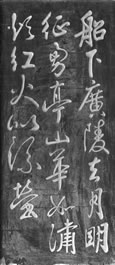 船下廣陵去月明
征虜亭山華如繡
頰江火似流螢